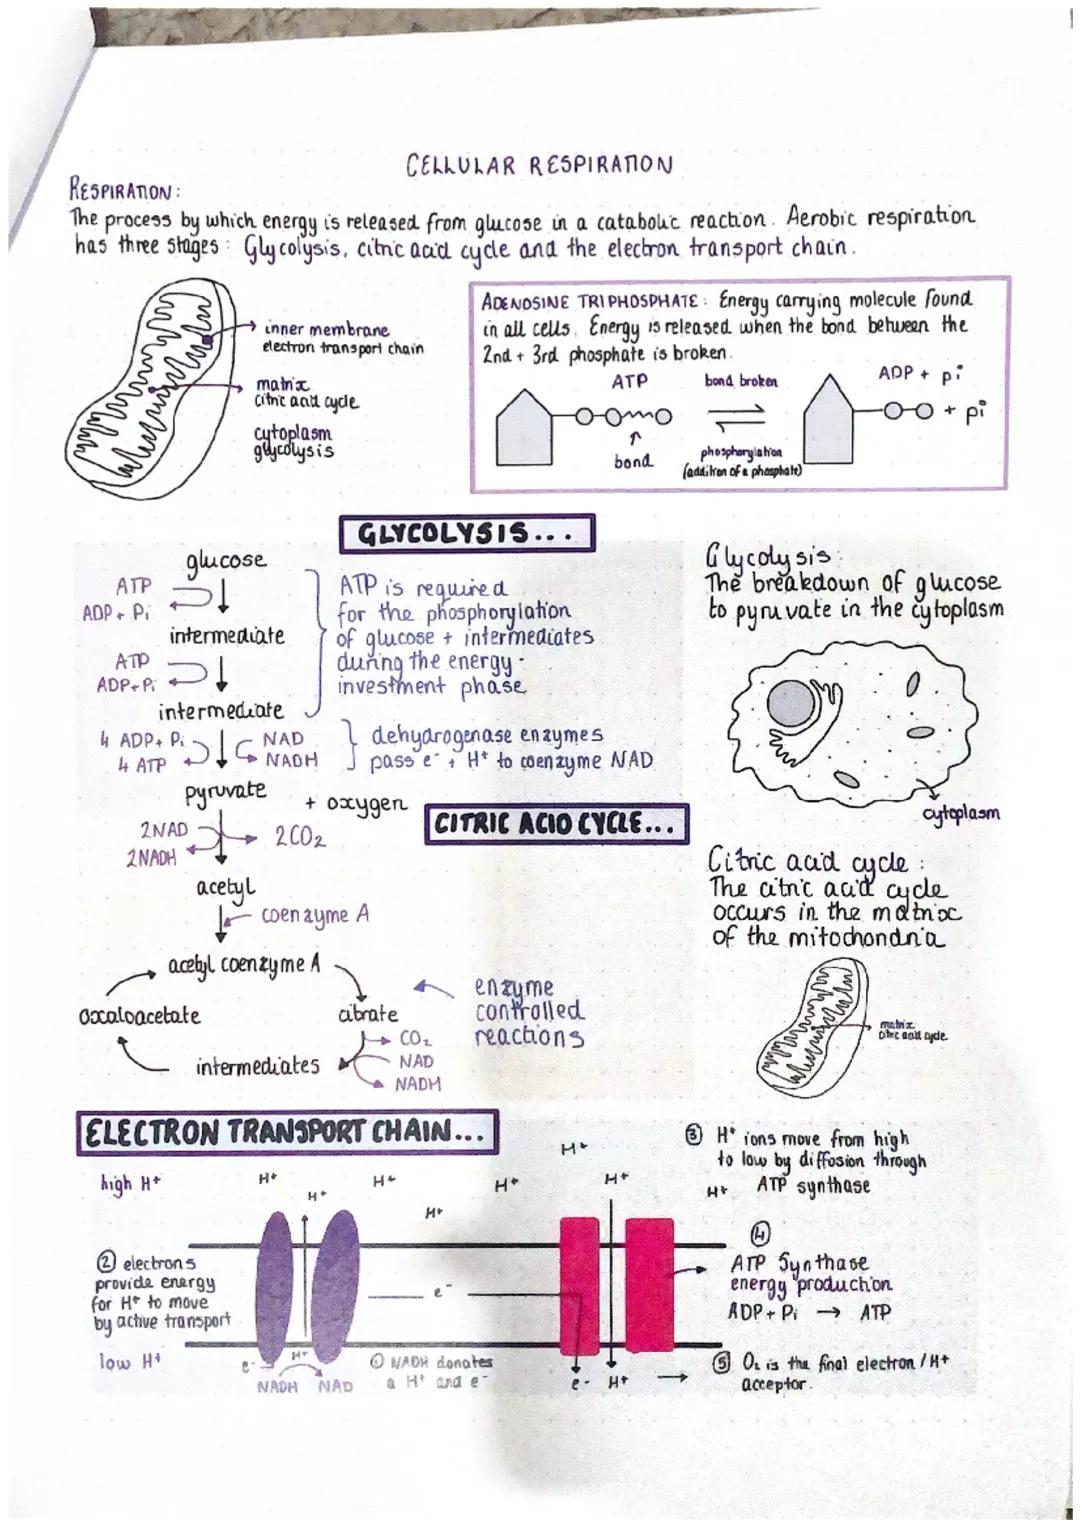 CELLULAR RESPIRATION
RESPIRATION:
The process by which energy is released from glucose in a catabolic reaction. Aerobic respiration
has three stages: Glycolysis, citric acid cycle and the electron transport chain.
inner membrane
electron transport chain
matrix
citric acid cycle
cytoplasm
glycolysis
ADENOSINE TRIPHOSPHATE: Energy carrying molecule found
in all cells. Energy is released when the bond between the
2nd + 3rd phosphate is broken.
ATP
bond broken
ADP + pi
+ pi
bond
phosphorylation
(addition of a phosphate)
GLYCOLYSIS...
glucose
ATP
ADP + Pi
intermediate
ATP
ADP + Pi
intermediate
4 ADP + Pi
4 ATP
NAD
NADH
pyruvate
ATP is required
for the phosphorylation
of glucose + intermediates
during the energy-
investment phase
dehydrogenase enzymes
pass e⁻ + H⁺ to coenzyme NAD
Glycolysis:
The breakdown of glucose
to pyruvate in the cytoplasm
cytoplasm
+ oxygen
CITRIC ACID CYCLE...
2NAD
2NADH
2CO₂
acetyl
coenzyme A
acetyl coenzyme A
oxaloacetate
citrate
CO₂
NAD
NADH
intermediates
enzyme
controlled
reactions
Citric acid cycle:
The citric acid cycle
occurs in the matrix
of the mitochondria
matrix
citric acid cycle
ELECTRON TRANSPORT CHAIN...
high H⁺
H⁺
H⁺
H⁺
H⁺
H⁺
H⁺
H⁺
H⁺
② electrons
provide energy
for H⁺ to move
by active transport
low H⁺
e⁻
H⁺
NADH
NAD
① NADH donates
a H⁺ and e⁻
e⁻
e⁻
H⁺
③ H⁺ ions move from high
to low by diffusion through
ATP synthase
④
ATP Synthase
energy production
ADP + Pi → ATP
⑤ O₂ is the final electron / H⁺
acceptor.